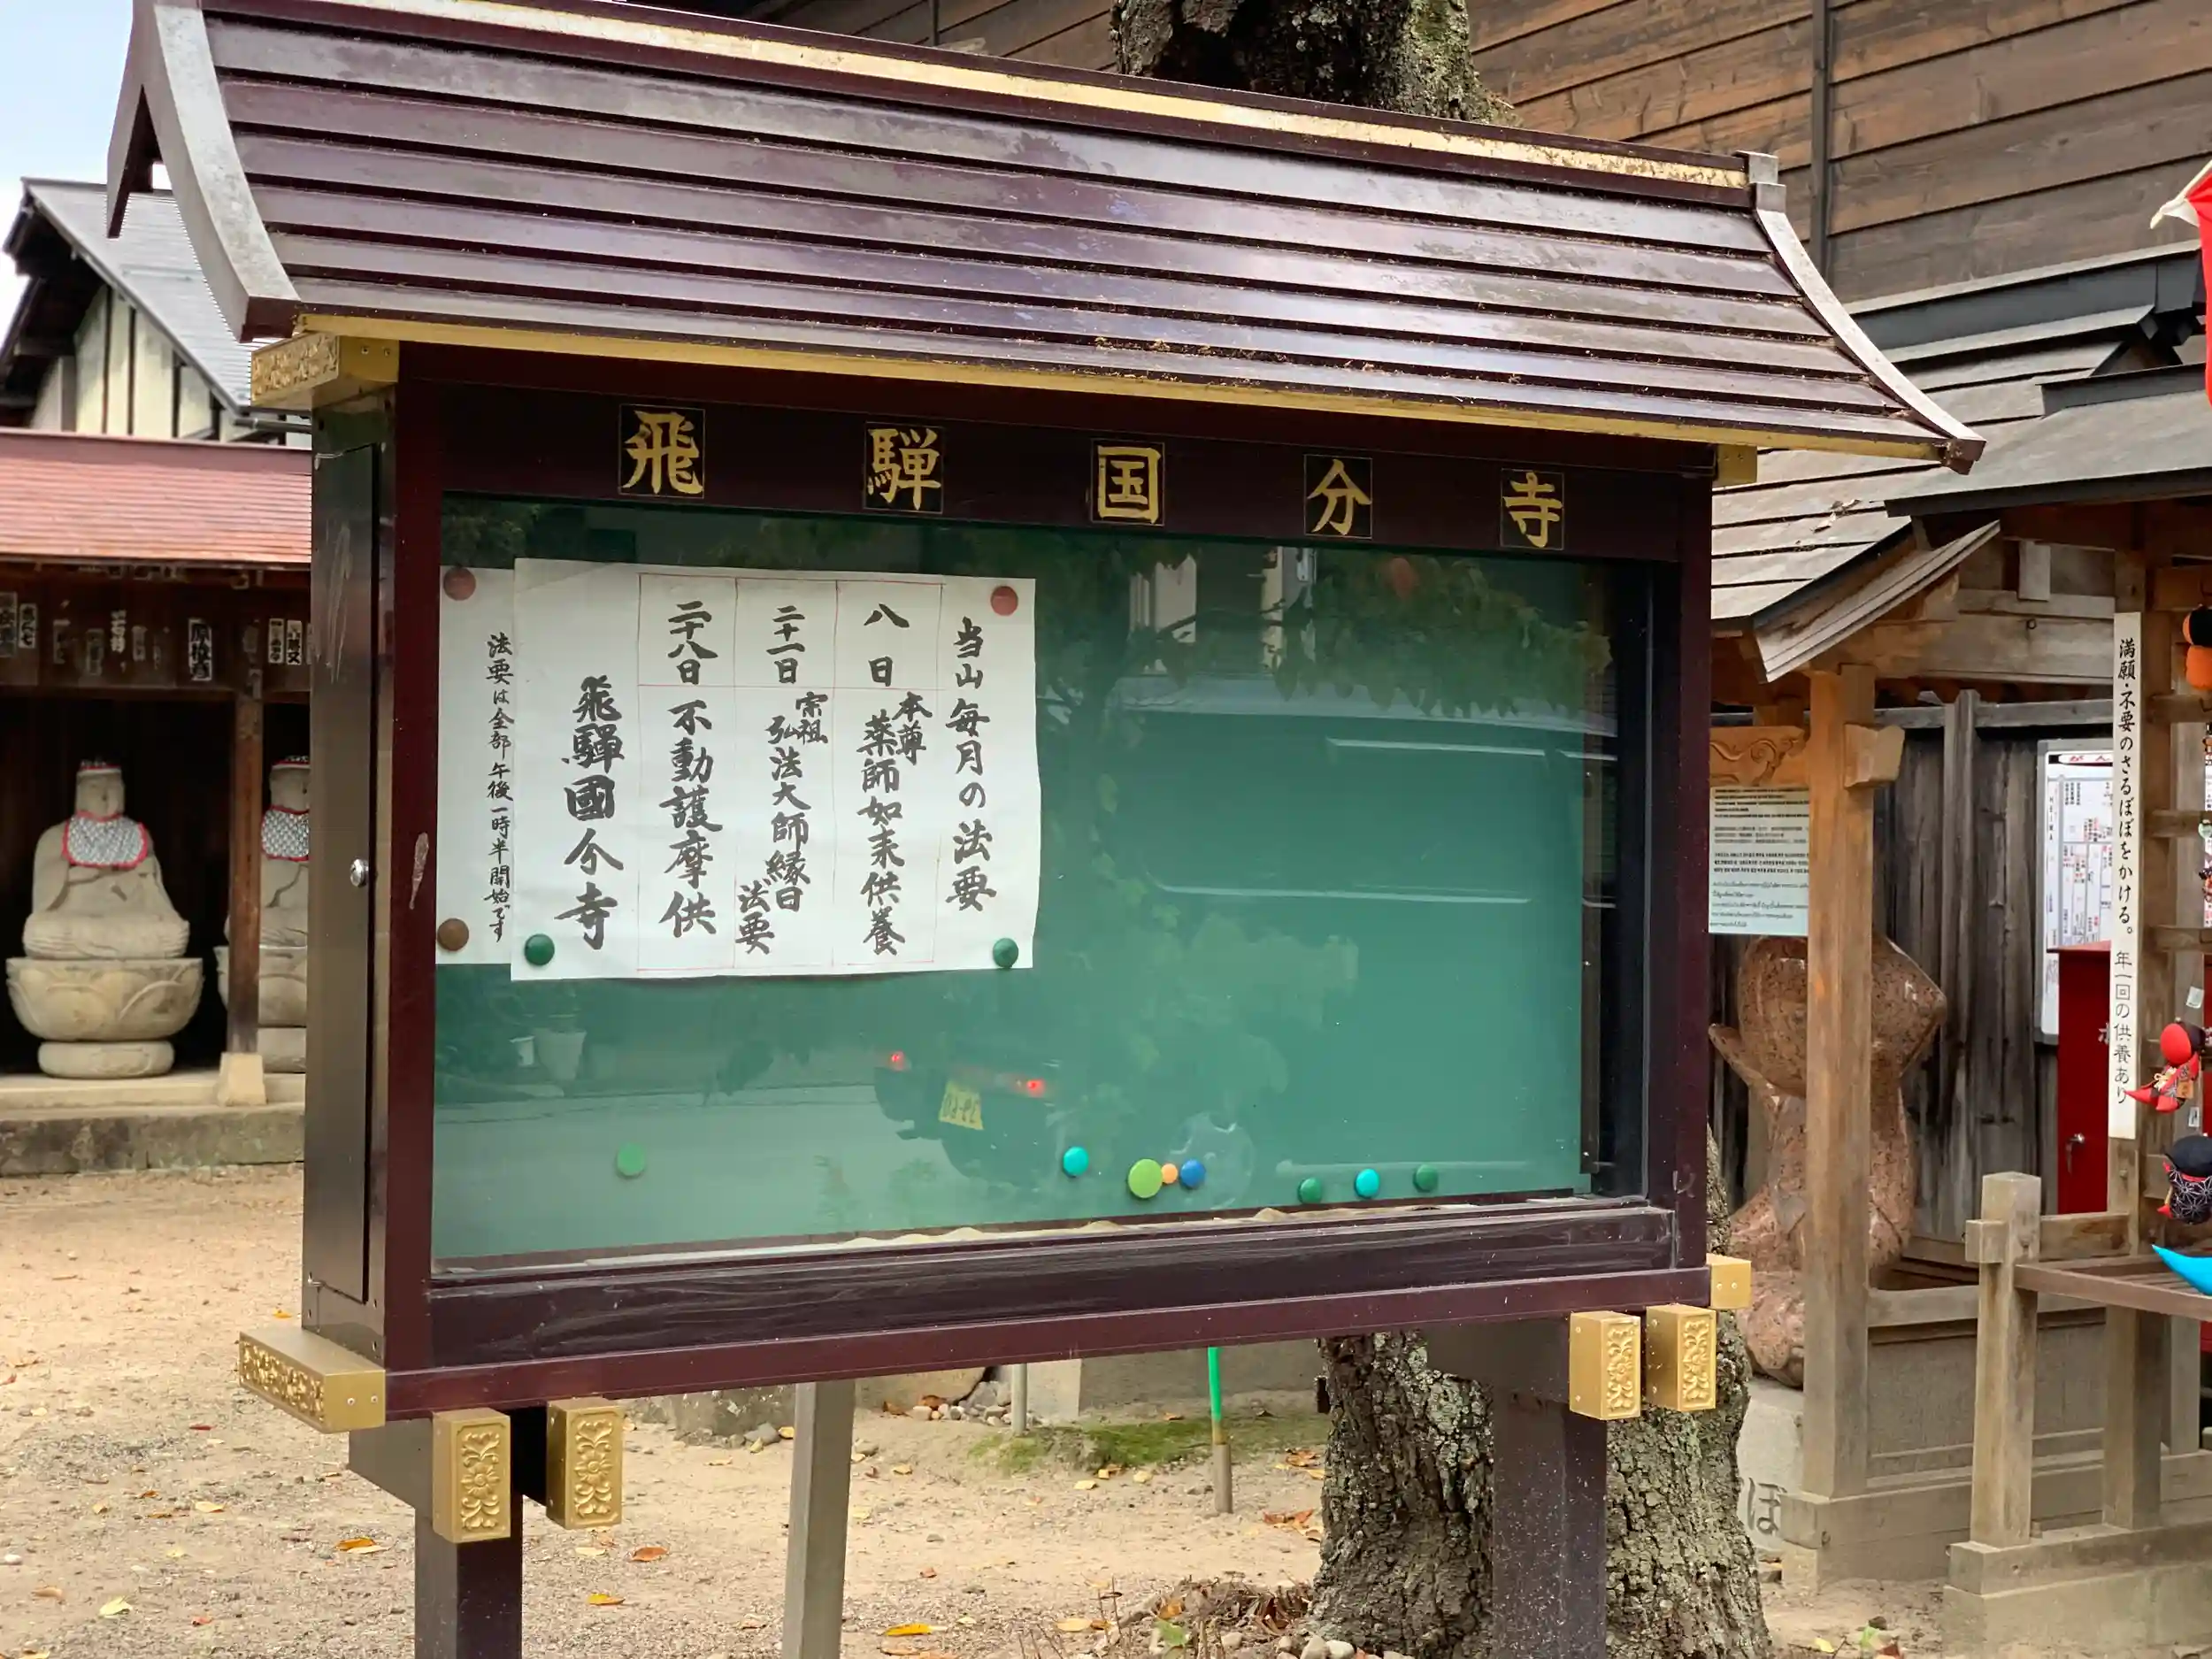 飛騨国分寺
当山毎月の法要
八日 本尊 薬師如来供養
二十一日 宗祖 弘法大師縁日法要
二十八日 不動護摩供
飛驒國分寺
法要は全部午後一時半開始です
満願・不要のさるぼぼをかける。年一回の供養あり
ぼ